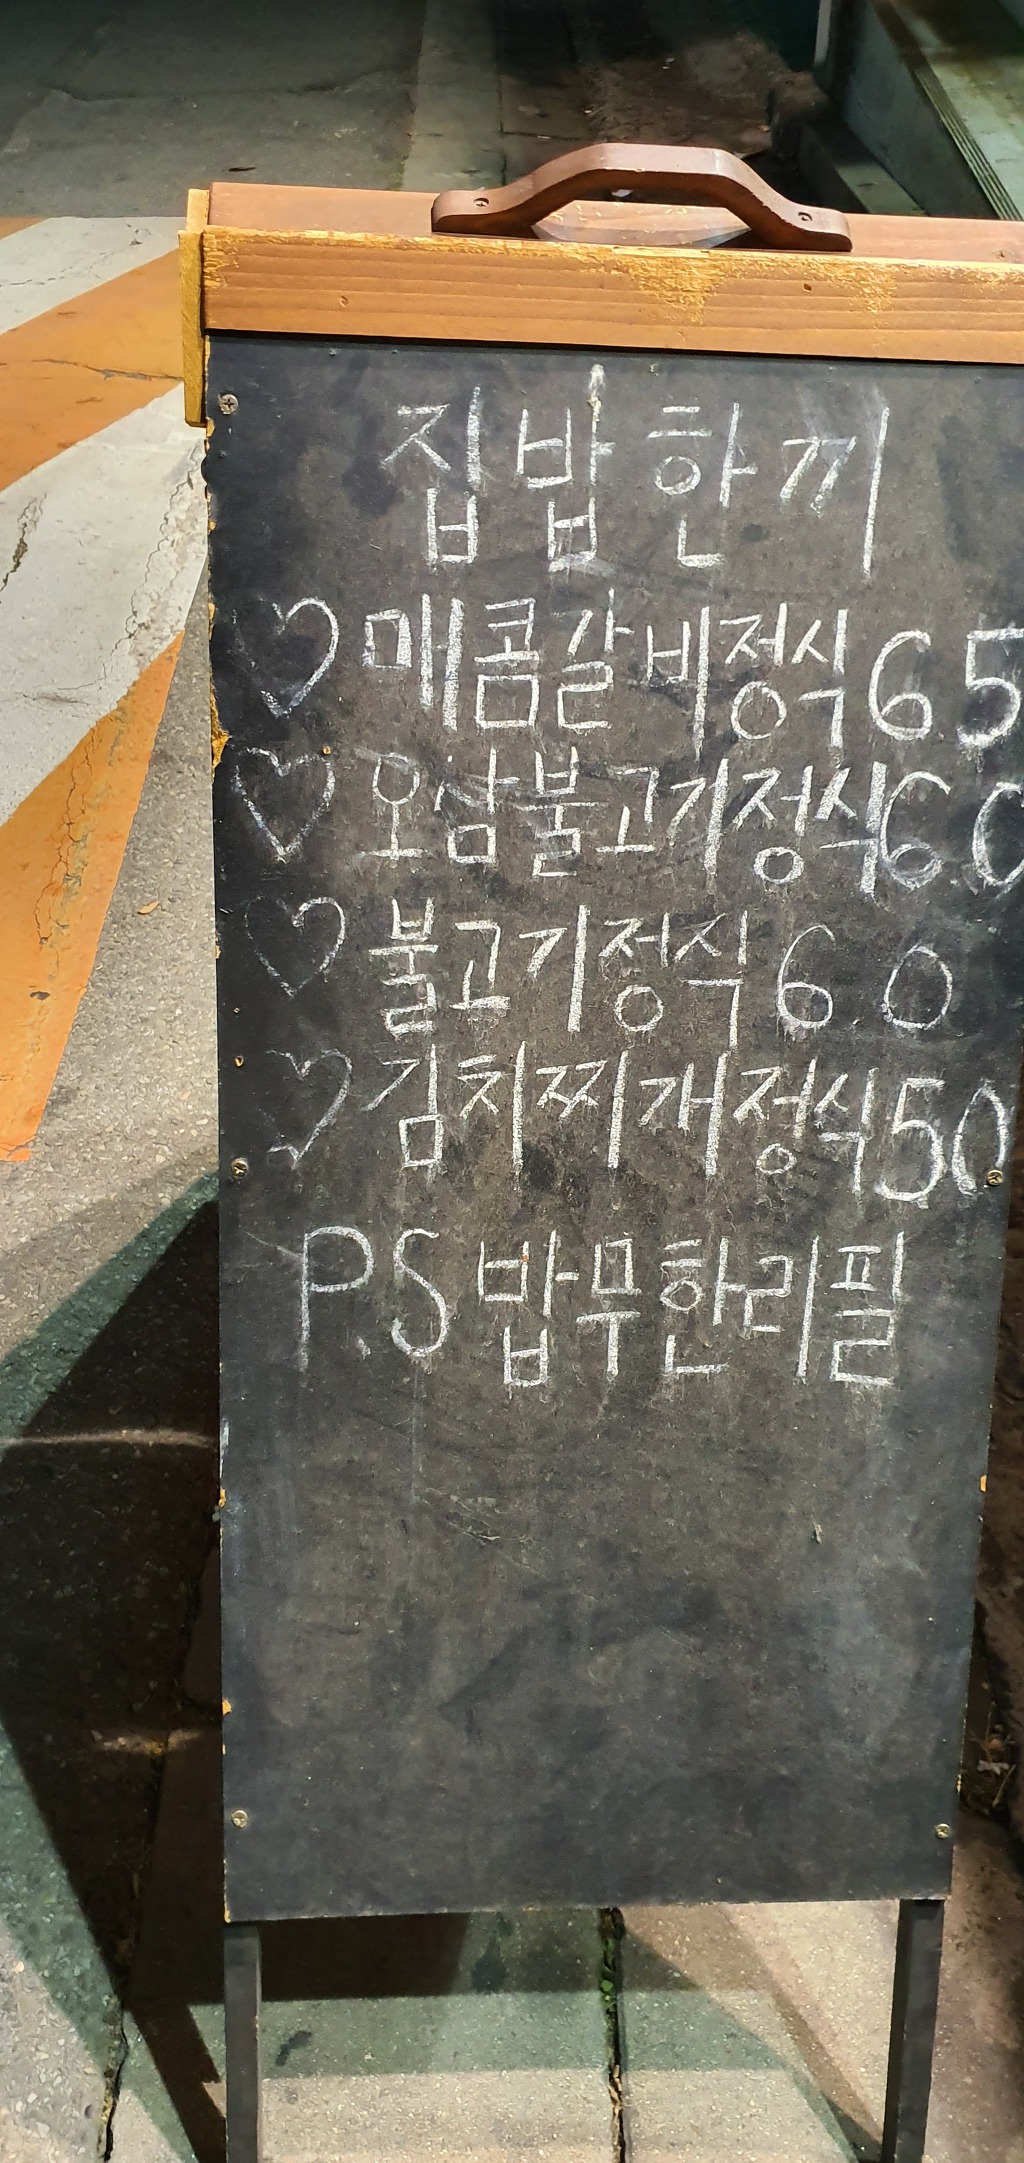 집밥한끼
♡매콤갈비정식 6 5
♡오삼불고기정식 6.0
♡불고기정식 6.0
♡김치찌개정식 50
P.S 밥무한리필